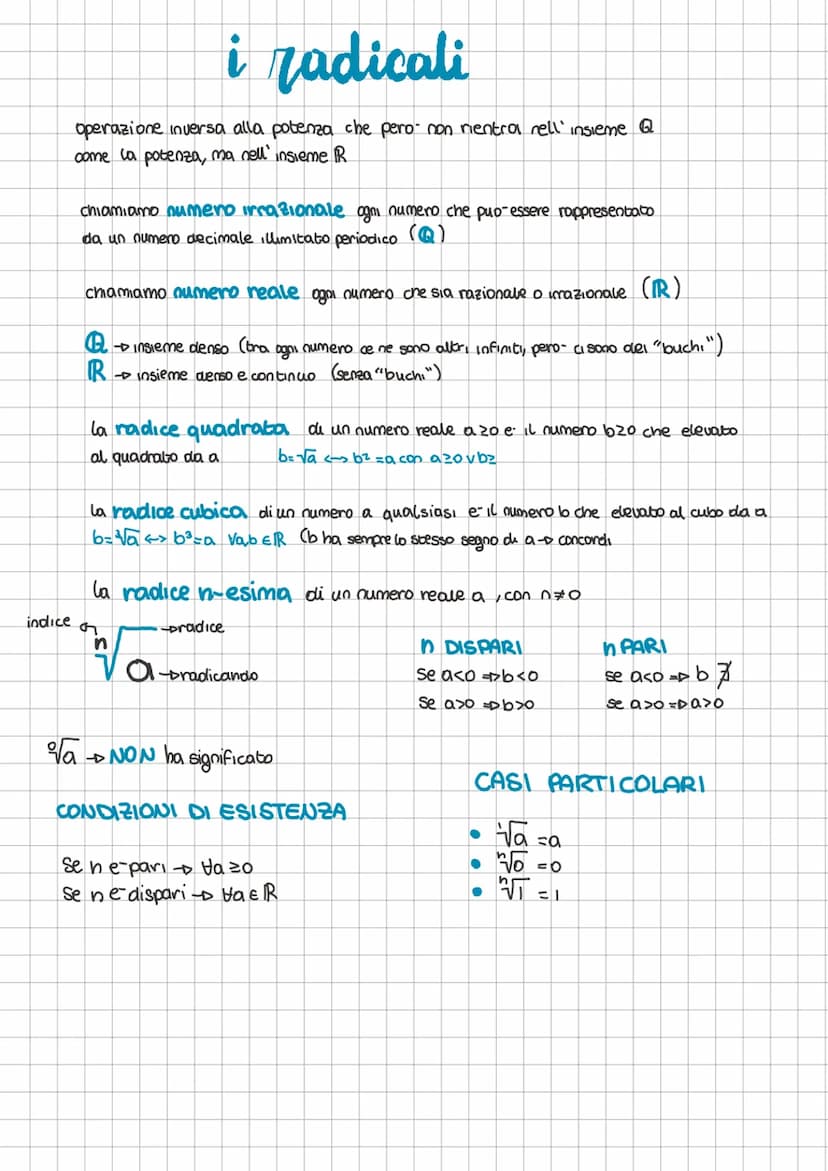 i radicali
operazione inversa alla potenza che però non rientra nell' insieme ℚ
come la potenza, ma nell' insieme ℝ
chiamiamo numero irrazionale ogni numero che può essere rappresentato
da un numero decimale illimitato periodico (ℚ)
chiamiamo numero reale ogni numero che sia razionale o irrazionale (ℝ)
ℚ → insieme denso (tra ogni numero ce ne sono altri infiniti, però ci sono dei "buchi")
ℝ → insieme denso e continuo (senza "buchi")
la radice quadrata di un numero reale a≥0 è il numero b≥0 che elevato
al quadrato da a b=√a ↔ b²=a con a≥0 v b≥
la radice cubica di un numero a qualsiasi è il numero b che elevato al cubo da a
b=∛a ↔ b³=a ∀a,b ∈ ℝ (b ha sempre lo stesso segno di a → concordi
la radice n-esima di un numero reale a, con n≠0
indice
n√a
→ radice
→ radicando
n DISPARI
se a<0 ⇒ b<0
se a>0 ⇒ b>0
n PARI
se a<0 ⇒ b ∄
se a>0 ⇒ a>0
⁰√a → NON ha significato
CONDIZIONI DI ESISTENZA
se n è pari → ∀a≥0
se n è dispari → ∀a∈ℝ
CASI PARTICOLARI
• ¹√a = a
• ⁿ√0 = 0
• ⁿ√1 = 1